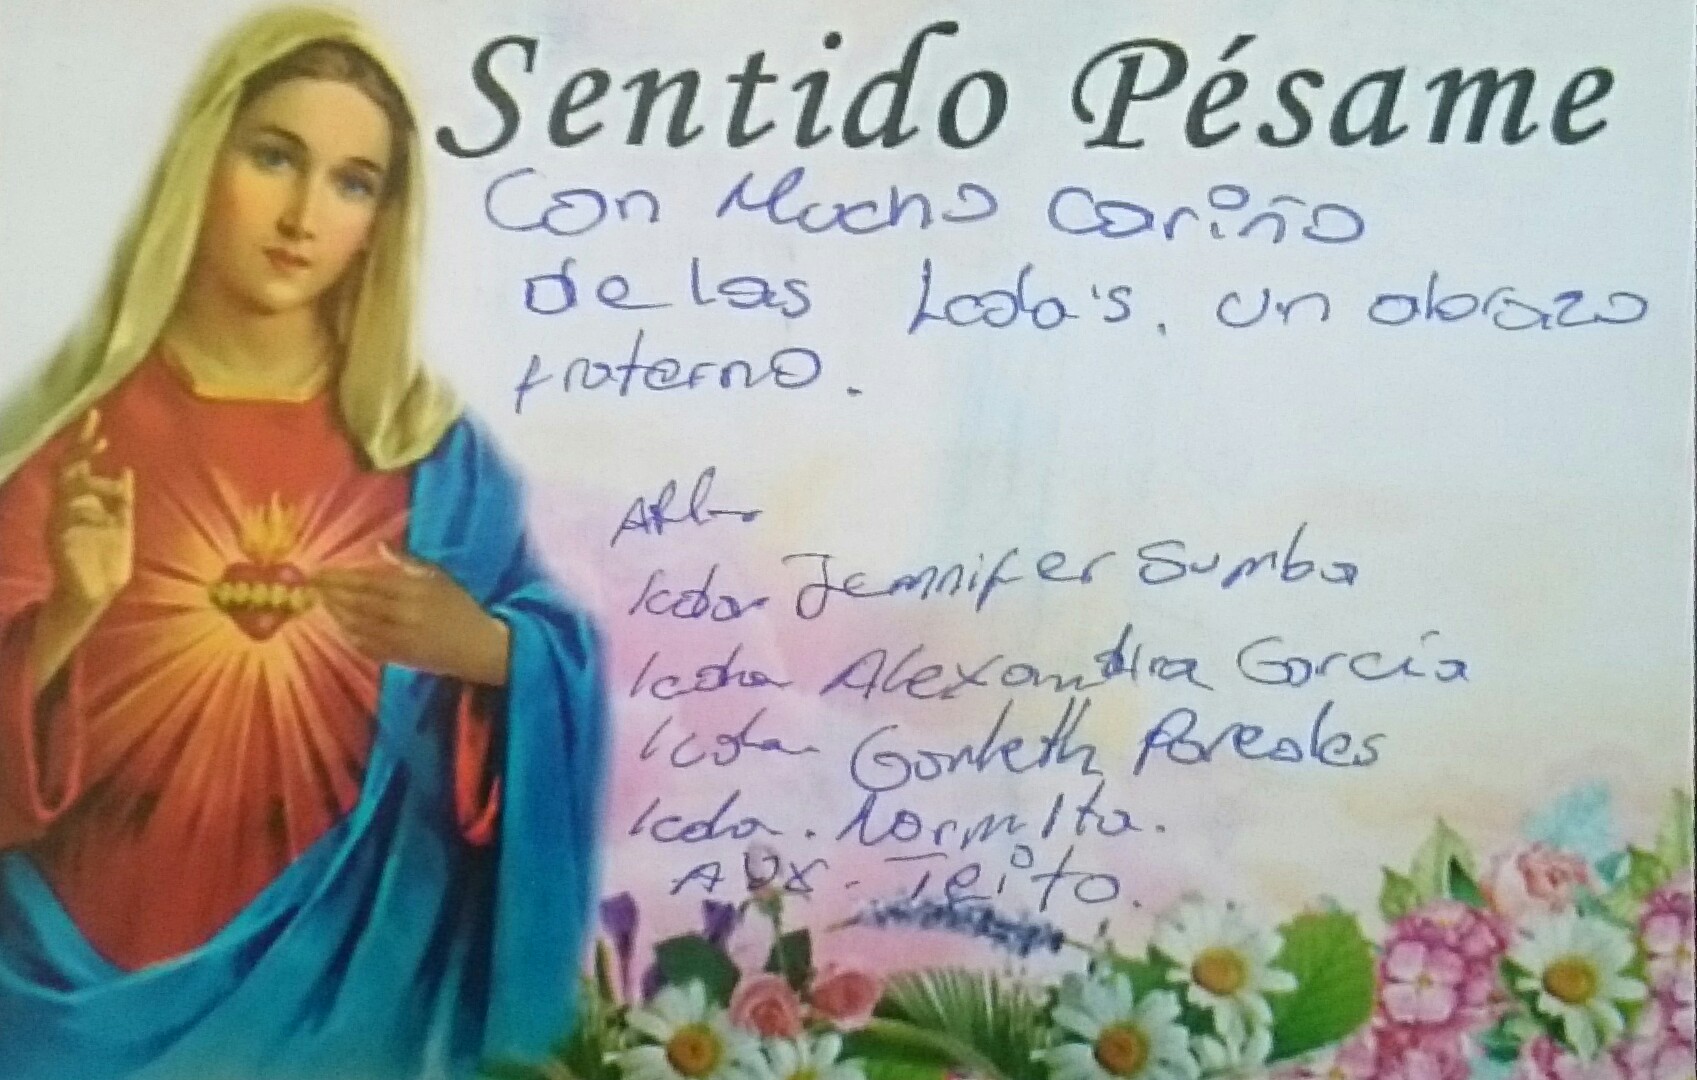 Sentido Pésame
Con Mucho cariño
de las Lcda's. un abrazo
fraterno.
lcda Jennifer Sumba
lcda Alexandra García
lcda
lcda. Normita.
Aux. Teito.